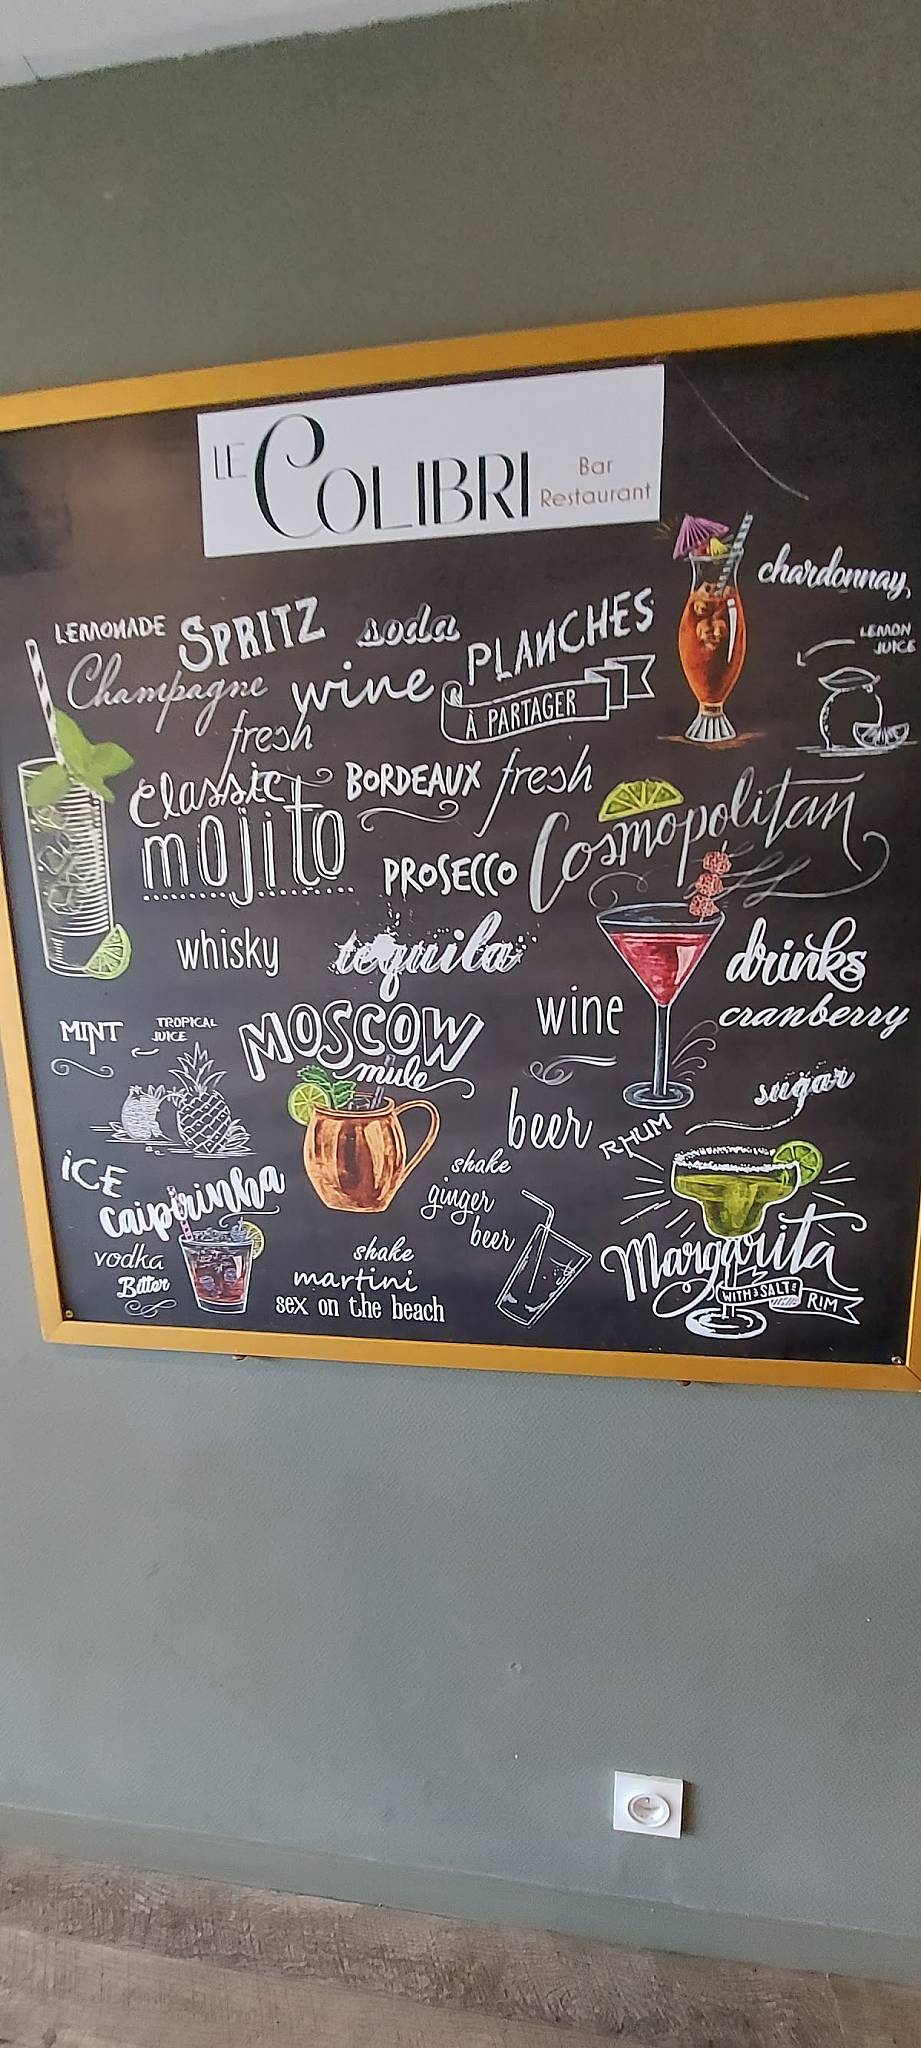 LE COLIBRI Bar Restaurant
chardonnay,
LEMONADE SPRITZ soda PLANCHES
LEMON JUICE
Champagne wine À PARTAGER
fresh
classic BORDEAUX fresh
mojito PROSECCO Cosmopolitan
whisky tequila drinks
wine cranberry
MINT TROPICAL JUICE MOSCOW
mule sugar
beer RHUM
ICE shake
caipirinha ginger
beer
vodka shake Margarita
Bitter martini WITH SALT RIM
sex on the beach